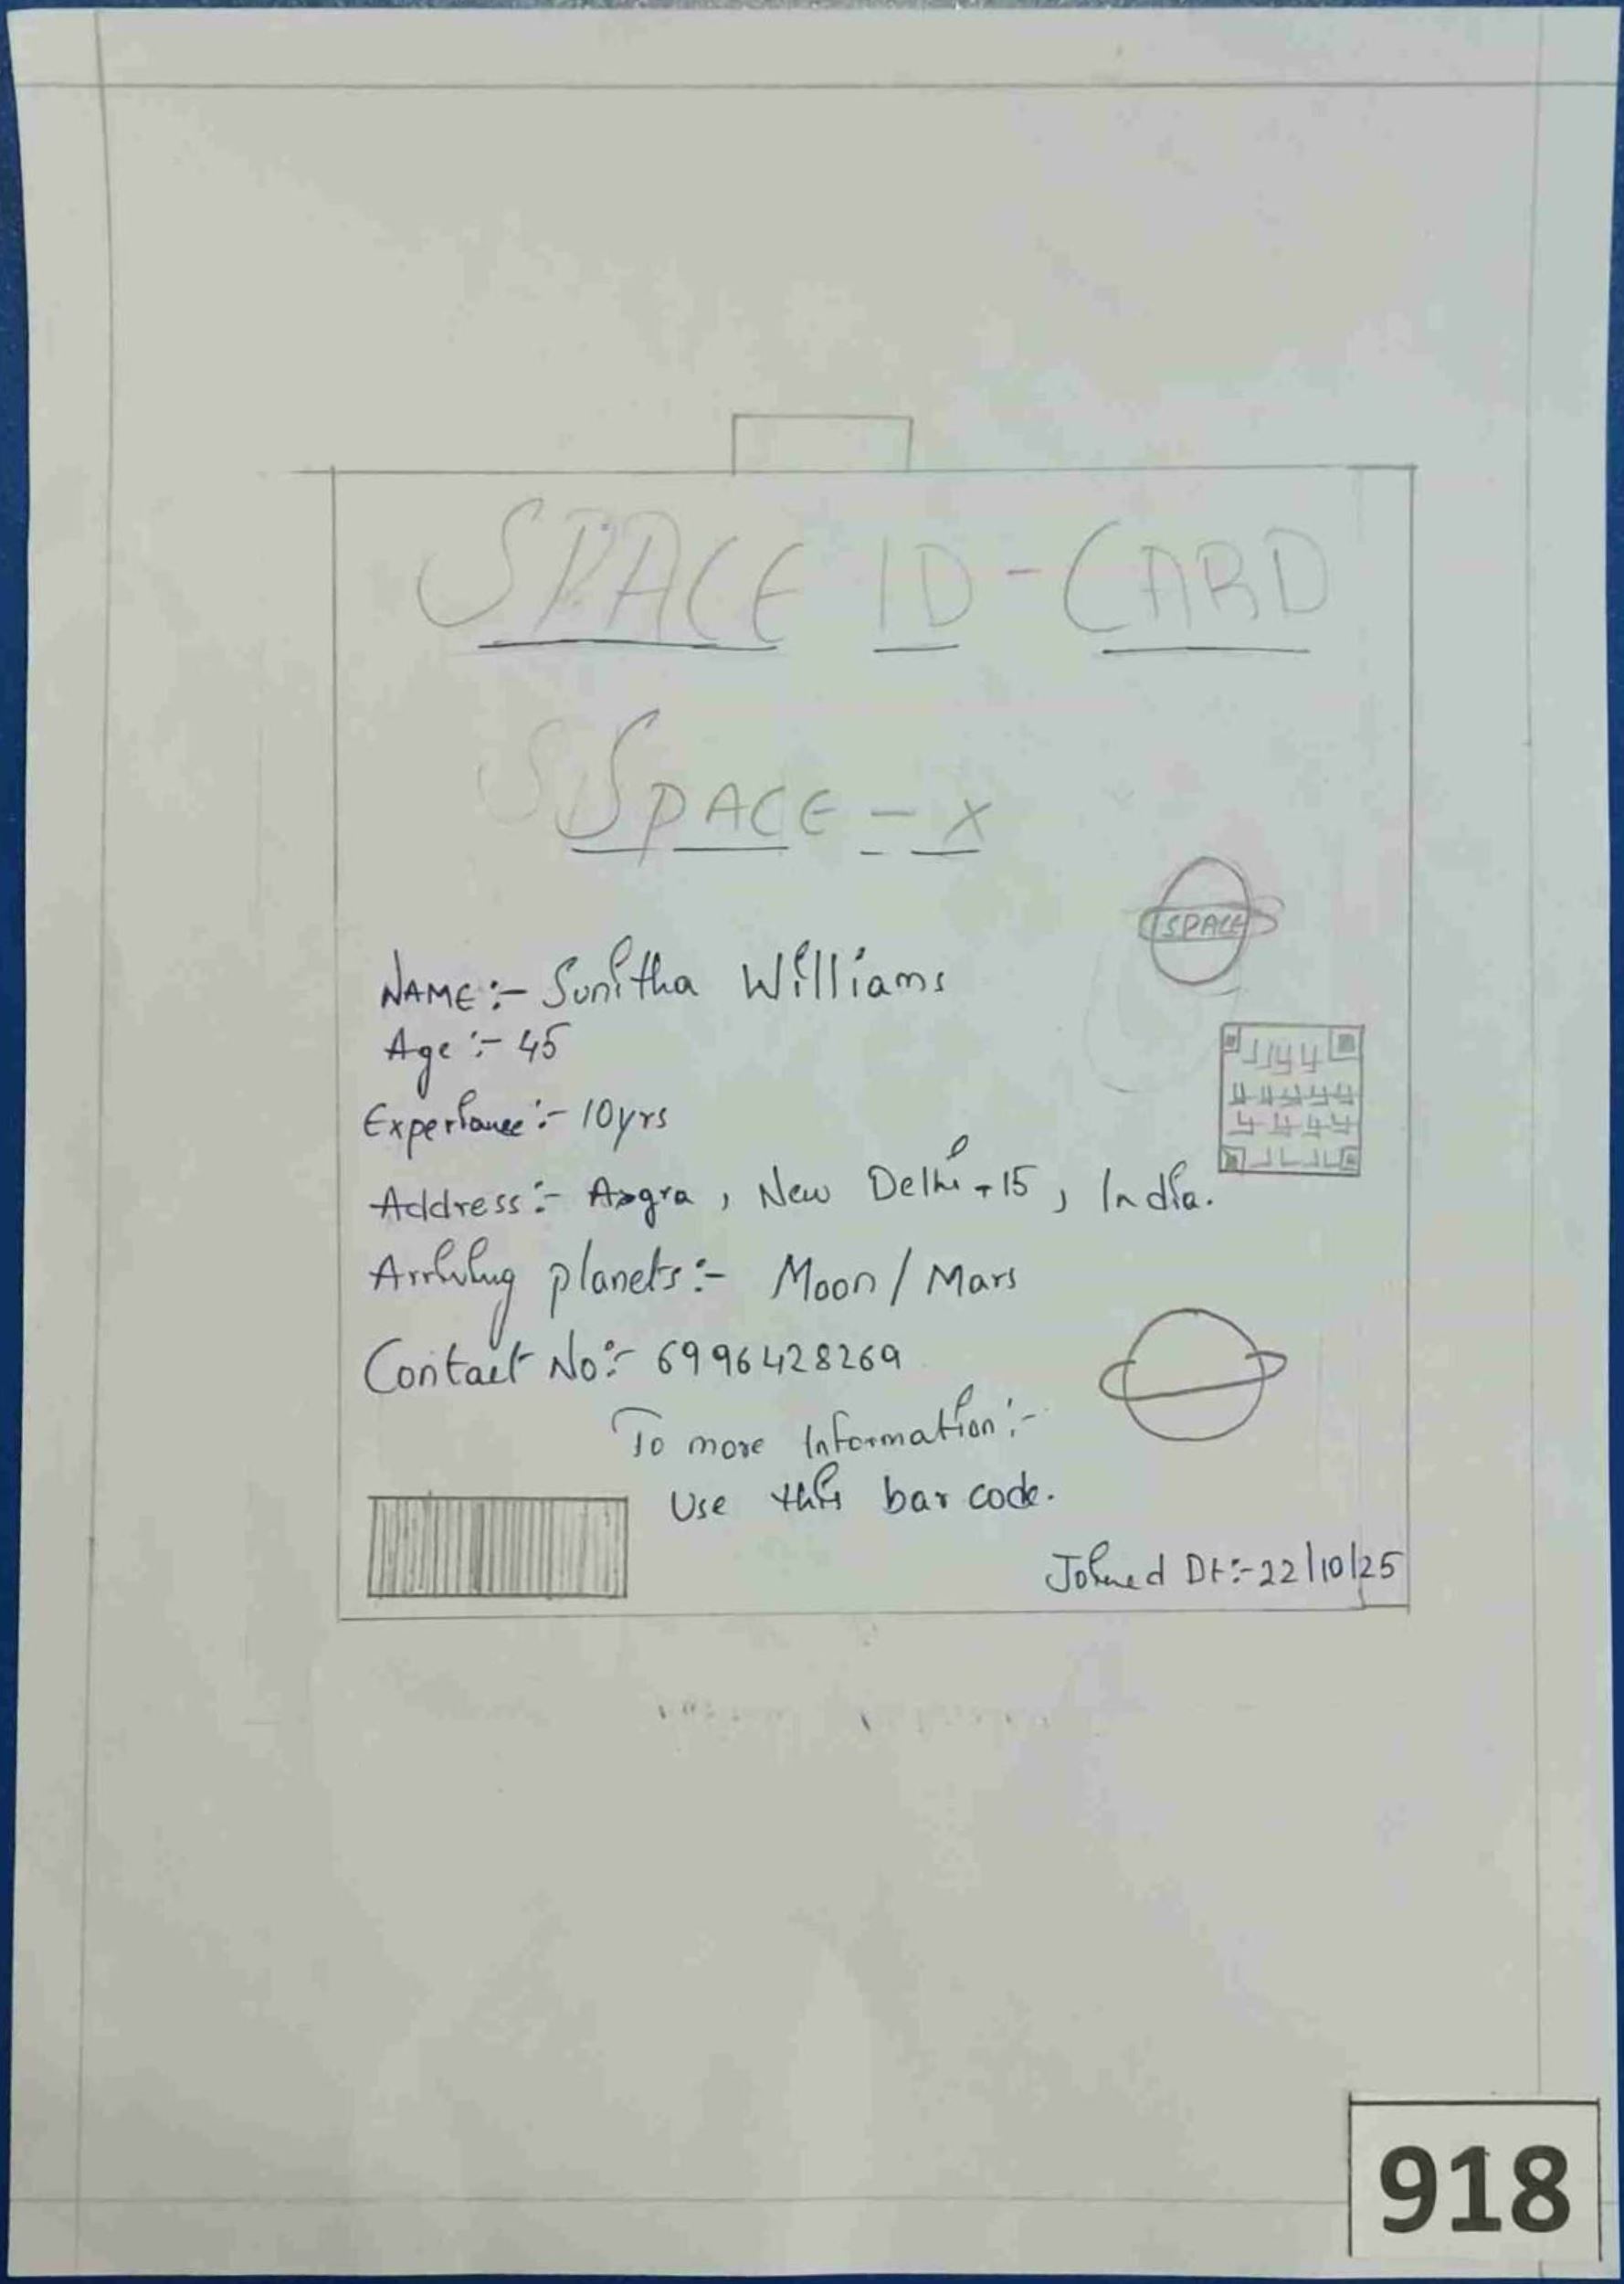 SPACE ID-CARD
SPACE-X
SPACE
NAME:- Sunitha Williams
Age:- 45
Experiance:- 10yrs
Address:- Aagra, New Delhi-15, India.
Arriving planets:- Moon/Mars
Contact No:- 6996428269
To more Information:-
Use this bar code.
Joined Dt:-22/10/25
918